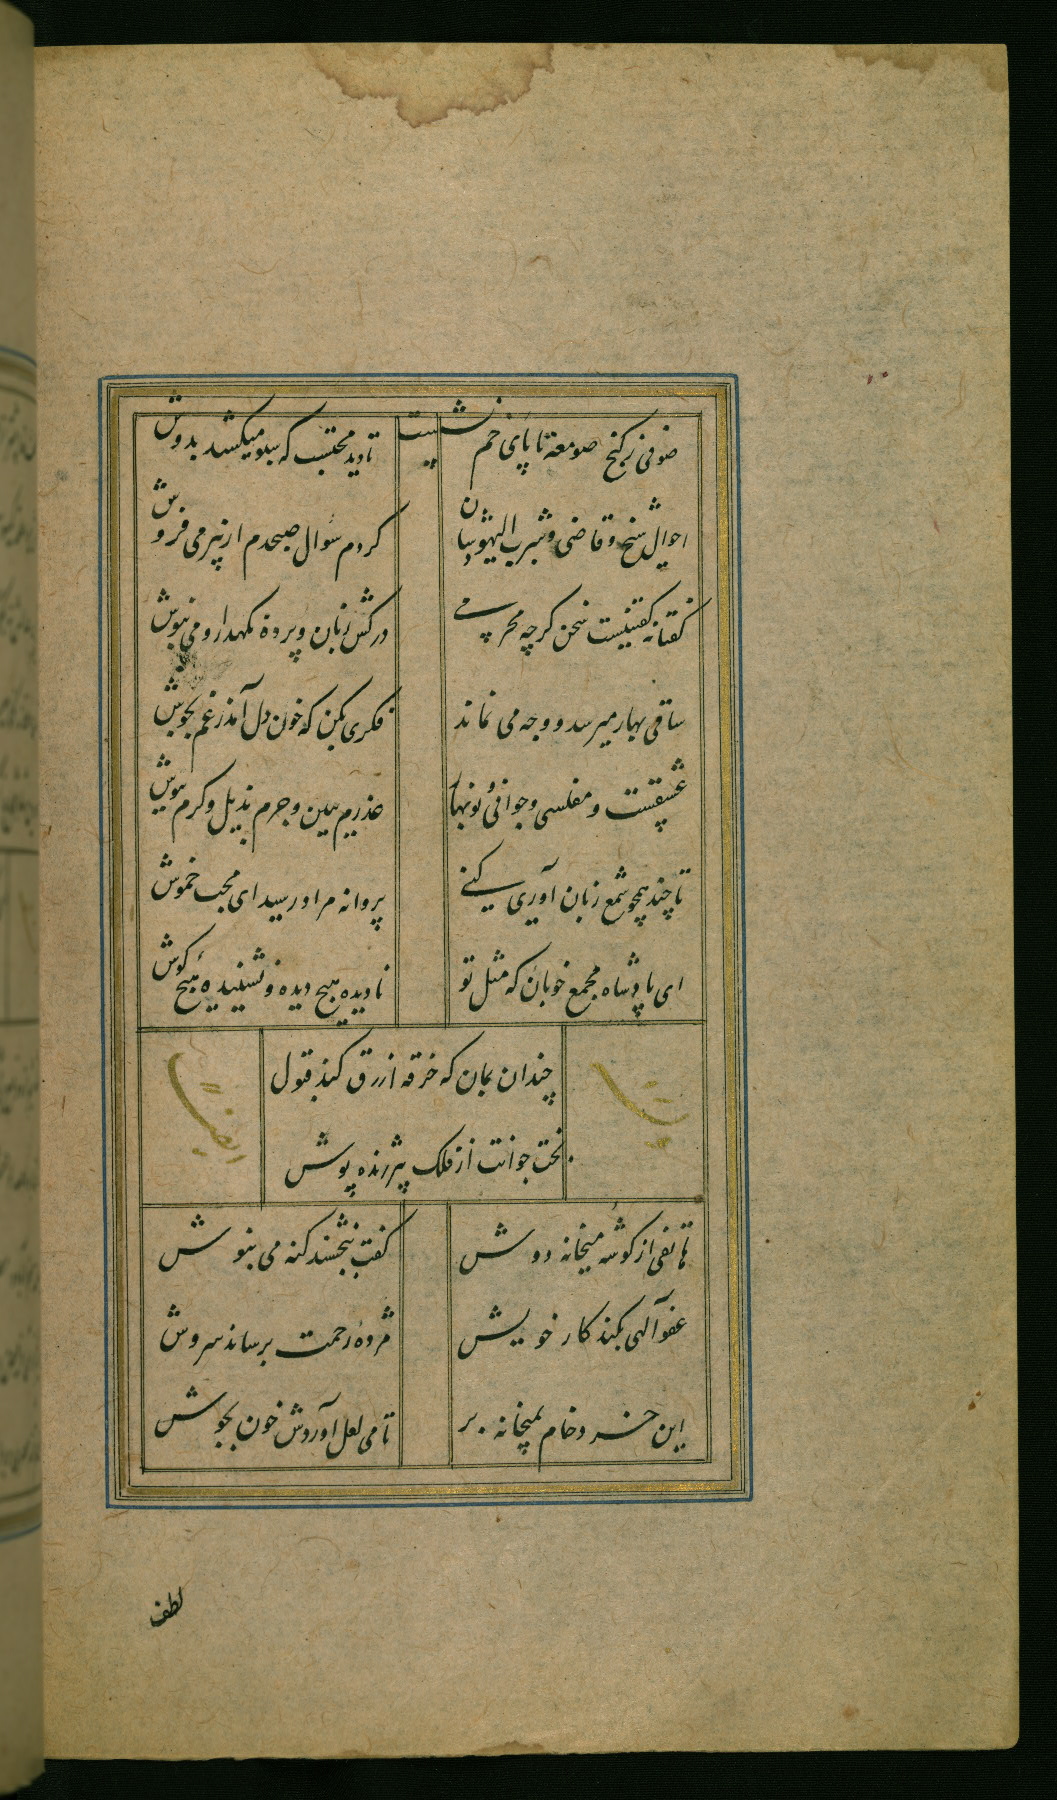 صوفی ز کنج صومعه تا پای خم نشست
تا دید محتسب که سبو میکشد بدوش
احوال شیخ و قاضی و شرب الیهودشان
کردم سؤال صبحدم از پیر می فروش
گفتا نه گفتنیست سخن گرچه محرمی
درکش زبان و پرده نگهدار و می بنوش
ساقی بهار میرسد و وجه می نماند
فکری بکن که خون دل آمد ز غم بجوش
عشقست و مفلسی و جوانی و نوبهار
عذرم ببین و جرم بذیل و کرم بپوش
تا چند همچو شمع زبان آوری کنی
پروانه مراد رسید ای محب خموش
ای پادشاه مجمع خوبان که مثل تو
نادیده هیچ دیده و نشنیده هیچ گوش
چندان بمان که خرقه ازرق کند قبول
بخت جوانت از فلک پیر ژنده پوش
هاتفی از گوشه میخانه دوش
گفت ببخشند گنه می بنوش
عفو آلهی بکند کار خویش
مژده رحمت برساند سروش
این خرد خام بمیخانه بر
تا می لعل آوردش خون بجوش
لطف